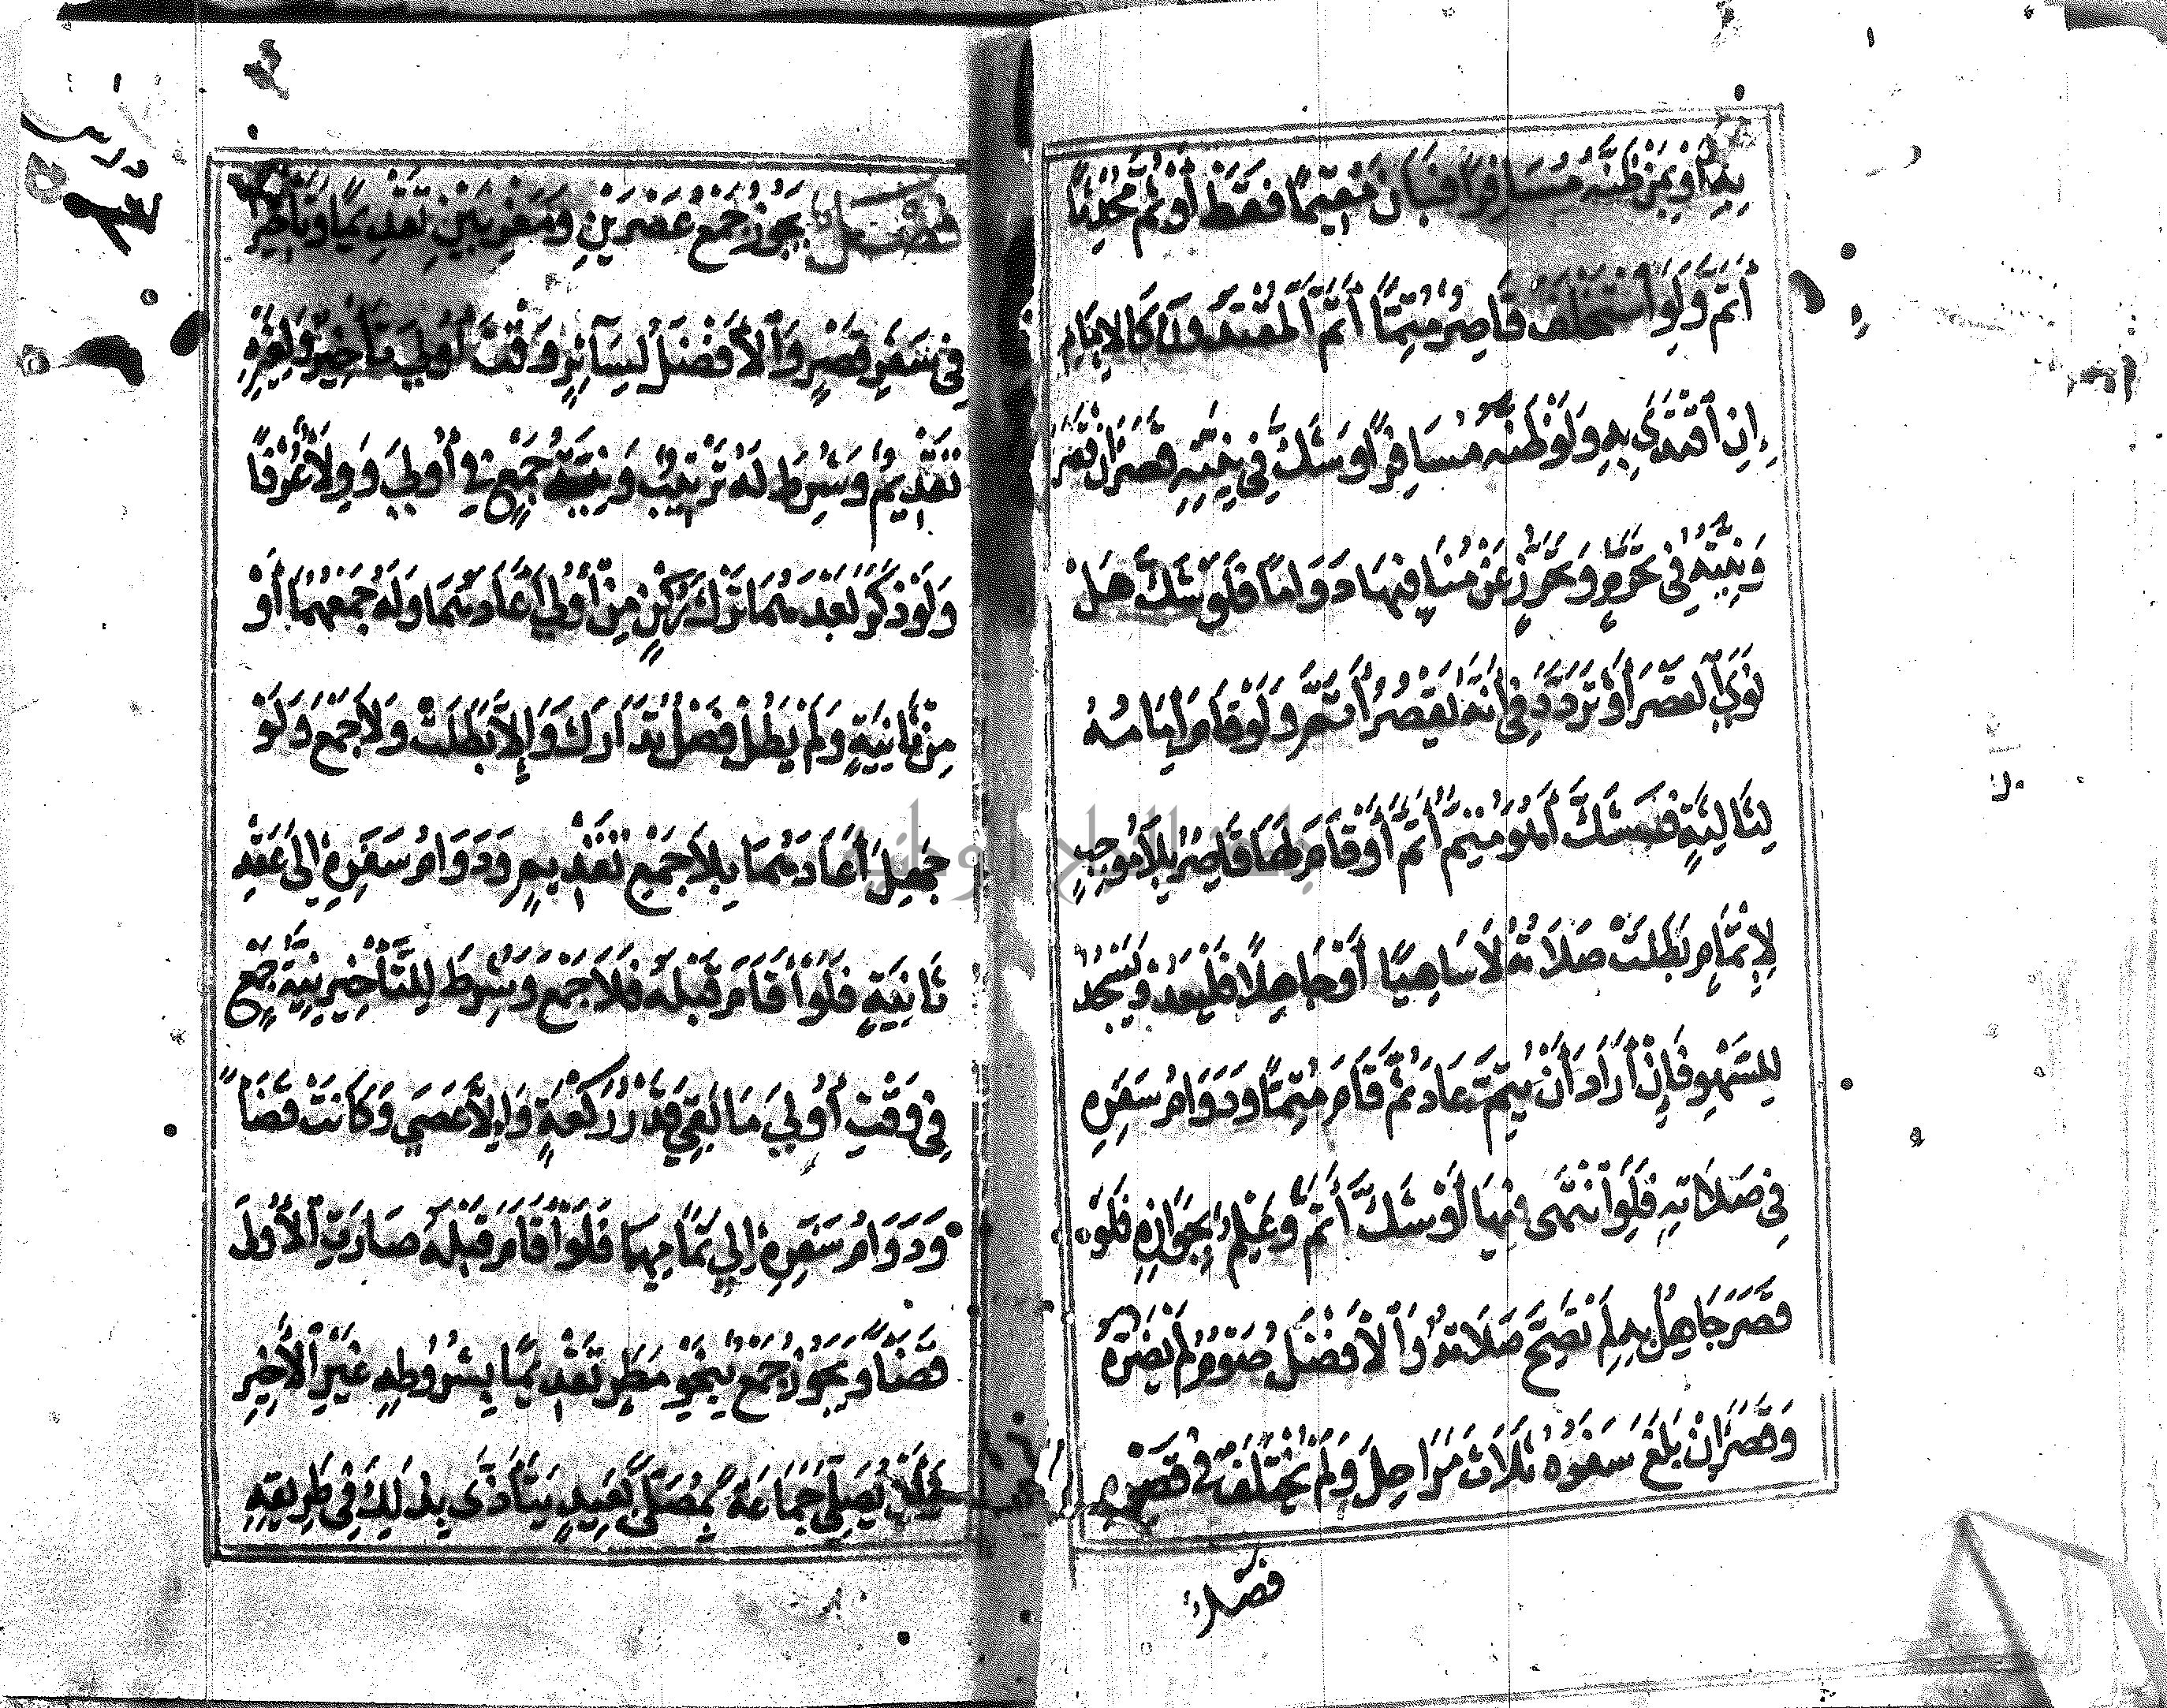 بِهِ أَوْ بِمَنْ ظَنَّهُ مُسَافِرًا فَبَانَ مُقِيمًا فَقَطْ أَوْ ثُمَّ مُحْدِثًا
أَتَمَّ وَلَوِ اسْتَخْلَفَ قَاصِرٌ مُتِمًّا أَتَمَّ الْمُقْتَدُونَ كَالْإِمَامِ
إِنِ اقْتَدَى بِهِ وَلَوْ ظَنَّهُ مُسَافِرًا وَشَكَّ فِي نِيَّتِهِ قَصَرَ إِنْ قَصَرَ
وَنِيَّتُهُ فِي تَحَرُّمٍ وَتَحَرُّزٌ عَنْ مُنَافِيهَا دَوَامًا فَلَوْ شَكَّ هَلْ
نَوَى الْقَصْرَ أَوْ تَرَدَّدَ فِي أَنَّهُ يَقْصُرُ أَتَمَّ وَلَوْ قَامَ إِمَامُهُ
لِثَالِثَةٍ فَشَكَّ أَهُوَ مُتِمٌّ أَتَمَّ أَوْ قَامَ لَهَا قَاصِرٌ بِلَا مُوجِبٍ
لِإِتْمَامٍ بَطَلَتْ صَلَاتُهُ لَا سَاهِيًا أَوْ جَاهِلًا فَلْيَعُدْ وَيَسْجُدُ
لِلسَّهْوِ فَإِنْ أَرَادَ أَنْ يُتِمَّ عَادَ ثُمَّ قَامَ مُتِمًّا وَدَوَامُ سَفَرِهِ
فِي صَلَاتِهِ فَلَوِ انْتَهَى فِيهَا أَوْ شَكَّ أَتَمَّ وَعِلْمٌ بِجَوَازِهِ فَلَوْ
قَصَرَ جَاهِلٌ بِهِ لَمْ تَصِحَّ صَلَاتُهُ وَالْأَفْضَلُ صَوْمٌ لَمْ يَضُرَّهُ
وَقَصْرٌ إِنْ بَلَغَ سَفَرُهُ ثَلَاثَ مَرَاحِلَ وَلَمْ يُخْتَلَفْ فِي قَصْرِهِ
فصل
فَصْلٌ يَجُوزُ جَمْعُ عَصْرَيْنِ وَمَغْرِبَيْنِ تَقْدِيمًا وَتَأْخِيرًا
فِي سَفَرِ قَصْرٍ وَالْأَفْضَلُ لِسَائِرٍ وَقْتَ أُولَى تَأْخِيرٌ وَلِغَيْرِهِ
تَقْدِيمٌ وَشُرِطَ لَهُ تَرْتِيبٌ وَنِيَّةُ جَمْعٍ فِي أُولَى وَوِلَاءٌ عُرْفًا
وَلَوْ ذَكَرَ بَعْدَهُمَا تَرْكَ رُكْنٍ مِنْ أُولَى أَعَادَهُمَا وَلَهُ جَمْعُهُمَا أَوْ
مِنْ ثَانِيَةٍ وَلَمْ يَطُلْ فَصْلٌ تَدَارَكَ وَإِلَّا بَطَلَتْ وَلَا جَمْعَ وَلَوْ
جَهِلَ أَعَادَهُمَا بِلَا جَمْعِ تَقْدِيمٍ وَدَوَامُ سَفَرِهِ إِلَى عَقْدِ
ثَانِيَةٍ فَلَوْ أَقَامَ قَبْلَهُ فَلَا جَمْعَ وَشُرِطَ لِلتَّأْخِيرِ نِيَّةُ جَمْعٍ
فِي وَقْتِ أُولَى مَا بَقِيَ قَدْرُ رَكْعَةٍ وَإِلَّا عَصَى وَكَانَتْ قَضَاءً
وَدَوَامُ سَفَرِهِ إِلَى تَمَامِهَا فَلَوْ أَقَامَ قَبْلَهُ صَارَتِ الْأُولَى
قَضَاءً وَيَجُوزُ جَمْعٌ بِنَحْوِ مَطَرٍ تَقْدِيمًا بِشُرُوطِهِ غَيْرِ الْأَخِيرِ
يُصَلِّي جَمَاعَةً بِمُصَلًّى بَعِيدٍ يَتَأَذَّى بِذَلِكَ فِي طَرِيقِهِ